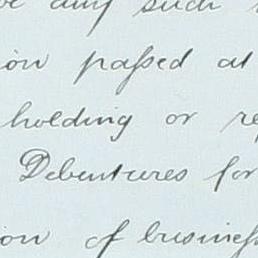 any such
ion paſsed at
holding or re
Debentures for
ion of busineſs